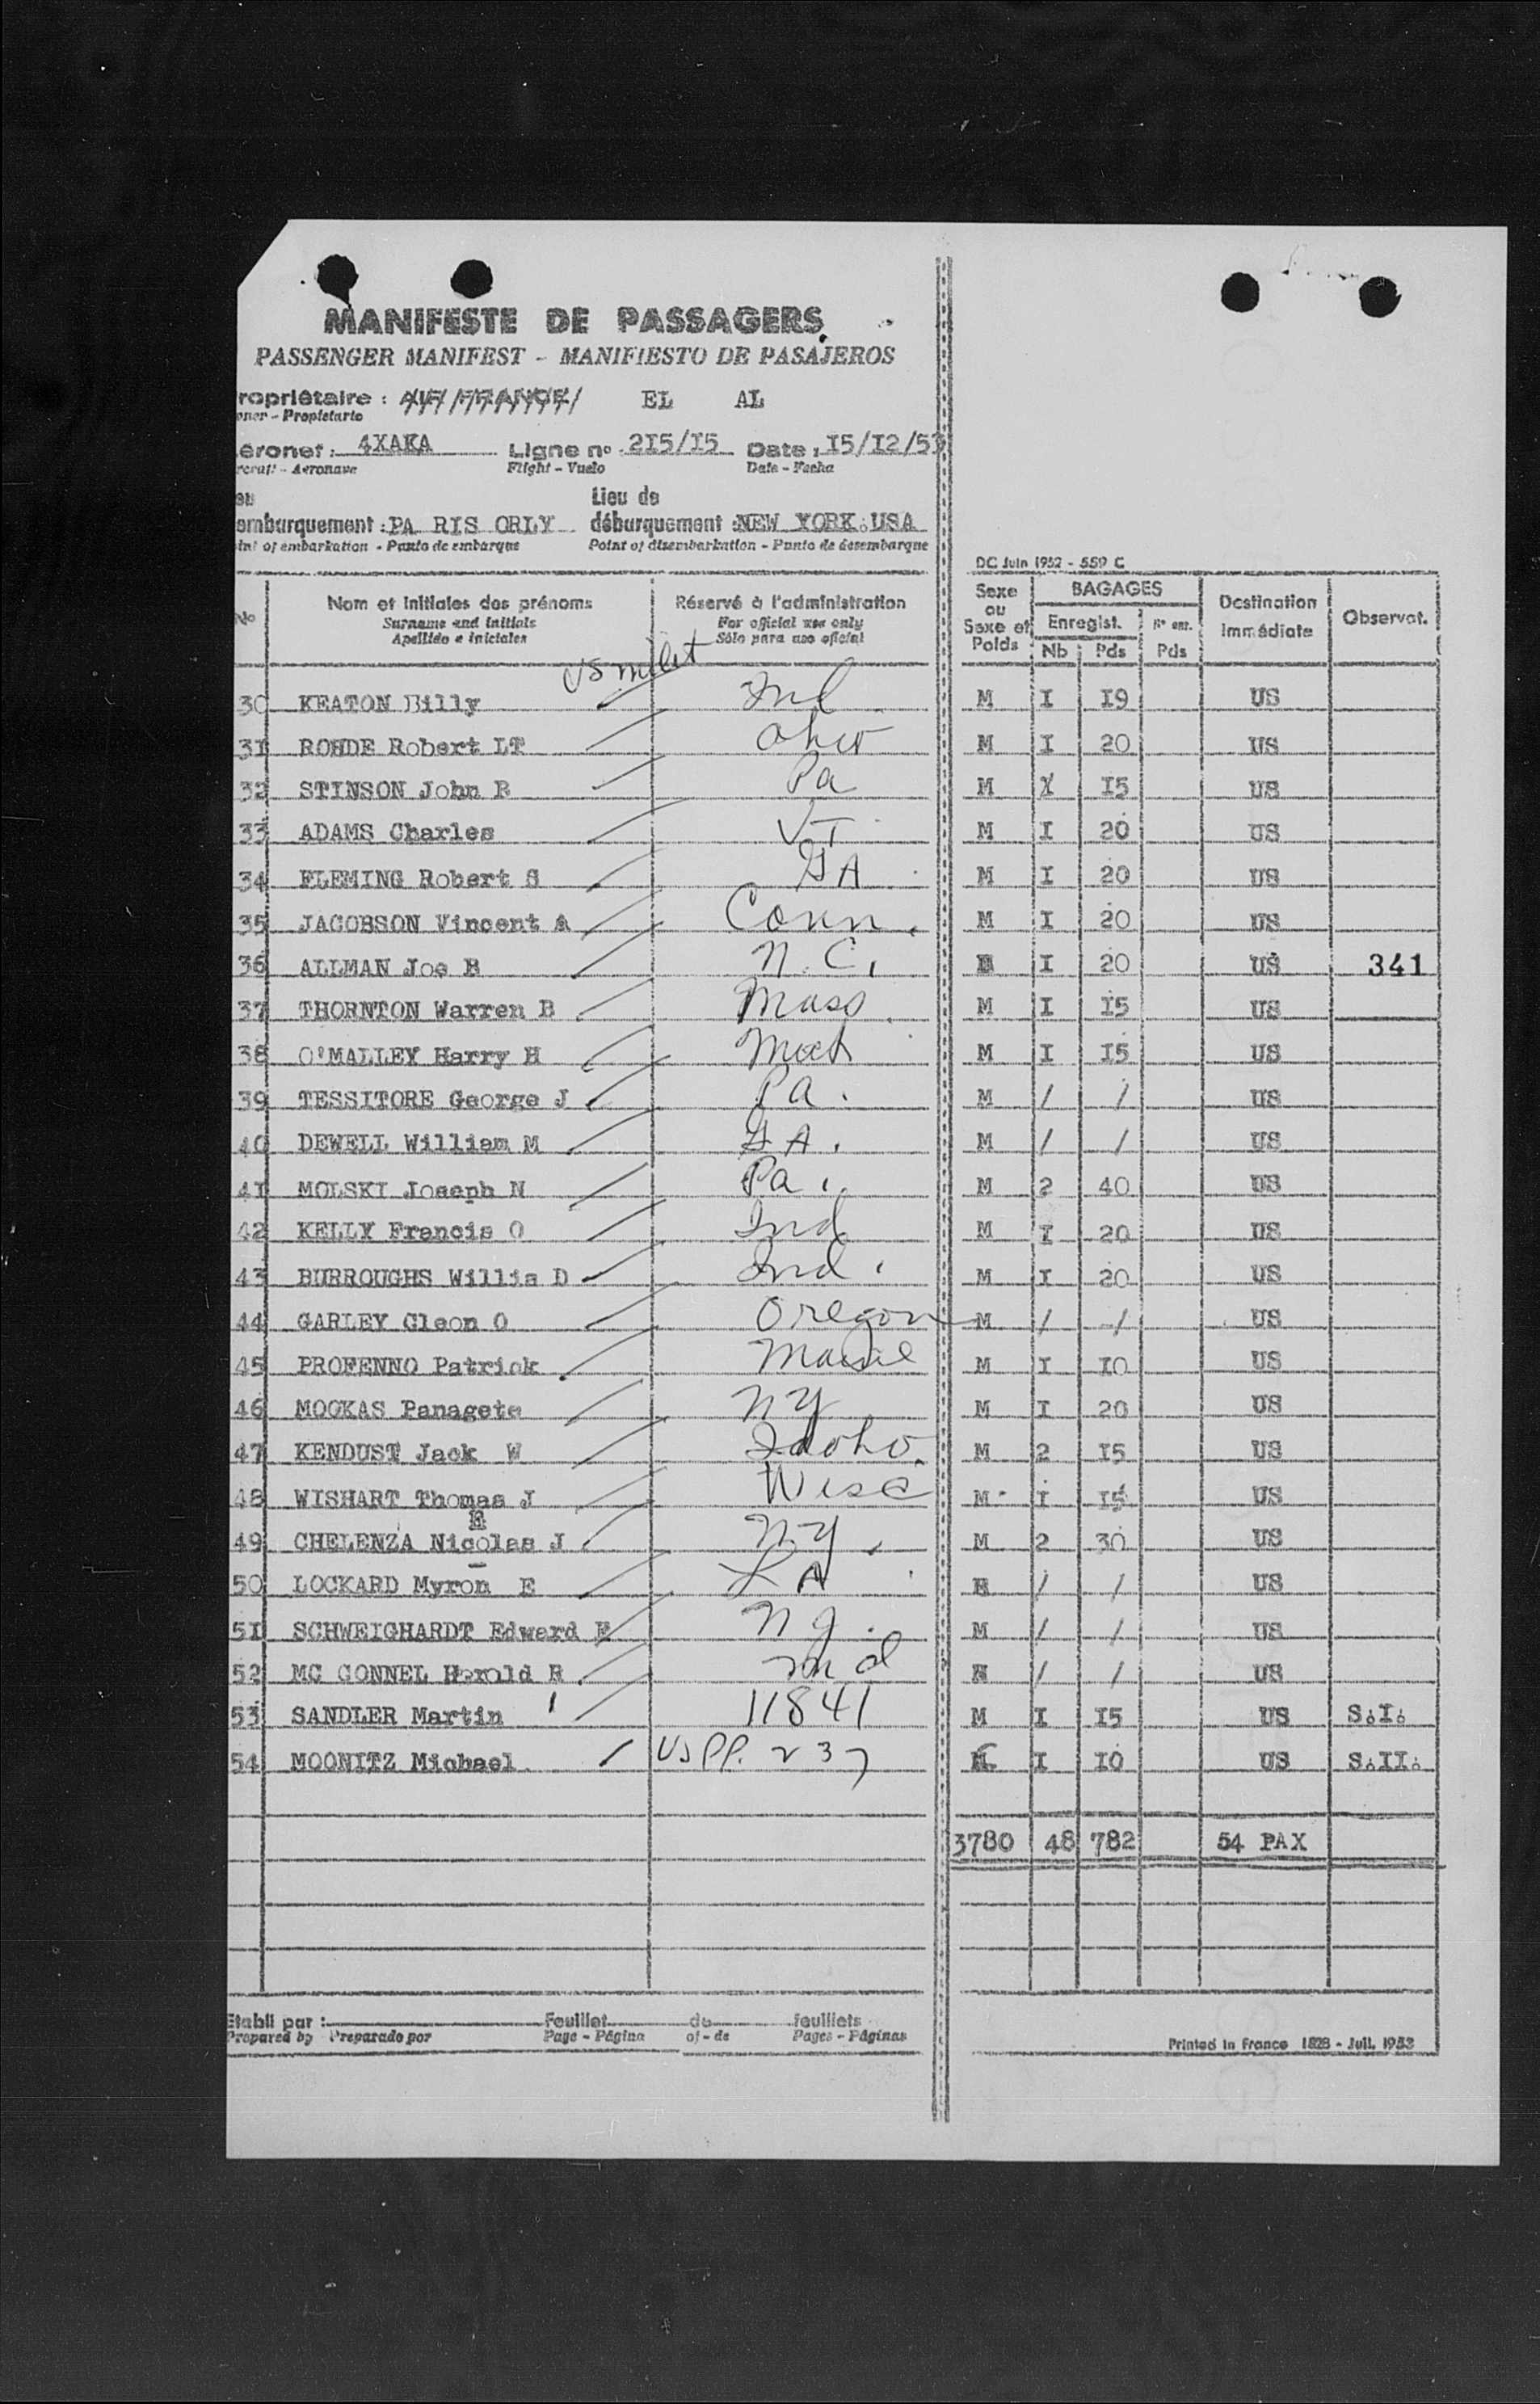 MANIFESTE DE PASSAGERS
PASSENGER MANIFEST - MANIFIESTO DE PASAJEROS
ropriétaire : AIR FRANCE/ EL AL
oner - Propietario
éronef : 4XAKA Ligne no 2I5/I5 Date : I5/I2/53
rcraft - Aeronave Flight - Vuelo Date - Fecha
eu Lieu de
embarquement : PA RIS ORLY débarquement : NEW YORK. USA
int of embarkation - Punto de embarque Point of disembarkation - Punto de desembarque
DC Juin 1952 - 559 C
No Nom et initiales des prénoms Réservé à l'administration Sexe ou Sexe et Poids BAGAGES Destination immédiate Observat.
Surname and initials For official use only Enregist. Nb Pds Pds
Apellido e iniciales Sólo para uso oficial
US milit
30 KEATON Billy Ind M I I9 US
3I ROHDE Robert LT Ohio M I 20 US
32 STINSON John R Pa M I I5 US
33 ADAMS Charles VT M I 20 US
34 FLEMING Robert S GA M I 20 US
35 JACOBSON Vincent A Conn. M I 20 US
36 ALLMAN Joe B N.C. I 20 US 341
37 THORNTON Warren B Mass. M I I5 US
38 O'MALLEY Harry H Mich M I I5 US
39 TESSITORE George J Pa. M / / US
40 DEWELL William M GA. M / / US
4I MOLSKI Joseph N Pa. M 2 40 US
42 KELLY Francis O Ind M I 20 US
43 BURROUGHS Willis D Ind. M I 20 US
44 GARLEY Cleon O Oregon M / -/ US
45 PROFENNO Patrick Maine M I I0 US
46 MOOKAS Panagete NY M I 20 US
47 KENDUST Jack W Idaho. M 2 I5 US
48 WISHART Thomas J Wisc M I I5 US
H
49 CHELENZA Nicolas J N.Y. M 2 30 US
50 LOCKARD Myron E LA / / US
5I SCHWEIGHARDT Edward F NJ. M / / US
52 MC CONNEL Harold R Md / / US
53 SANDLER Martin 11841 M I I5 US S.I.
54 MOONITZ Michael US PP. 237 I I0 US S.II.
3780 48 782 54 PAX
Etabli par : Feuillet de feuillets
Prepared by Preparado por Page - Página of - de Pages - Páginas
Printed in France 1828 - Juil. 1953